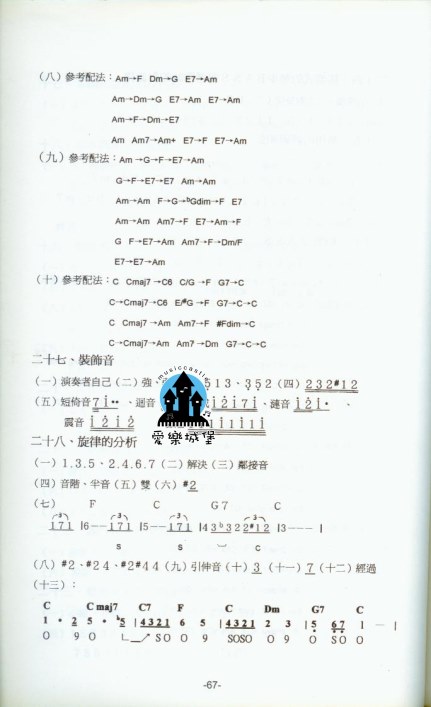 (八)參考配法：Am→F Dm→G E7→Am
Am→Dm→G E7→Am E7→Am
Am→F→Dm→E7
Am Am7→Am+ E7→F E7→Am
(九)參考配法：Am→G→F→E7→Am
G→F→E7→E7 Am→Am
Am→Am F→G→ᵇGdim→F E7
Am→Am Am7→F E7→Am→F
G F→E7→Am Am7→F→Dm/F
E7→E7→Am
(十)參考配法：C Cmaj7→C6 C/G→F G7→C
C→Cmaj7→C6 E/#G→F G7→C→C
C Cmaj7→Am Am7→F #Fdim→C
C→Cmaj7→Am Am7→Dm G7→C→C
二十七、裝飾音
(一)演奏者自己(二)強 513、352(四)232#12
(五)短倚音 迴音 漣音
震音
musiccastle
愛樂城堡
二十八、旋律的分析
(一)1.3.5、2.4.6.7(二)解決(三)鄰接音
(四)音階、半音(五)雙(六)#2
(七) F C G7 C
171 |6—— 171 |5—— 171 |43ᵇ322#12 |3——— |
s s c
(八)#2、#24、#2#44(九)引伸音(十)3(十一)7(十二)經過
(十三)：
C Cmaj7 C7 F C Dm G7 C
1·25· 5 |4321 6 5 |4321 2 3 |5 67 1 — |
O 9O SO O 9 SOSO O 9 O SO O
-67-